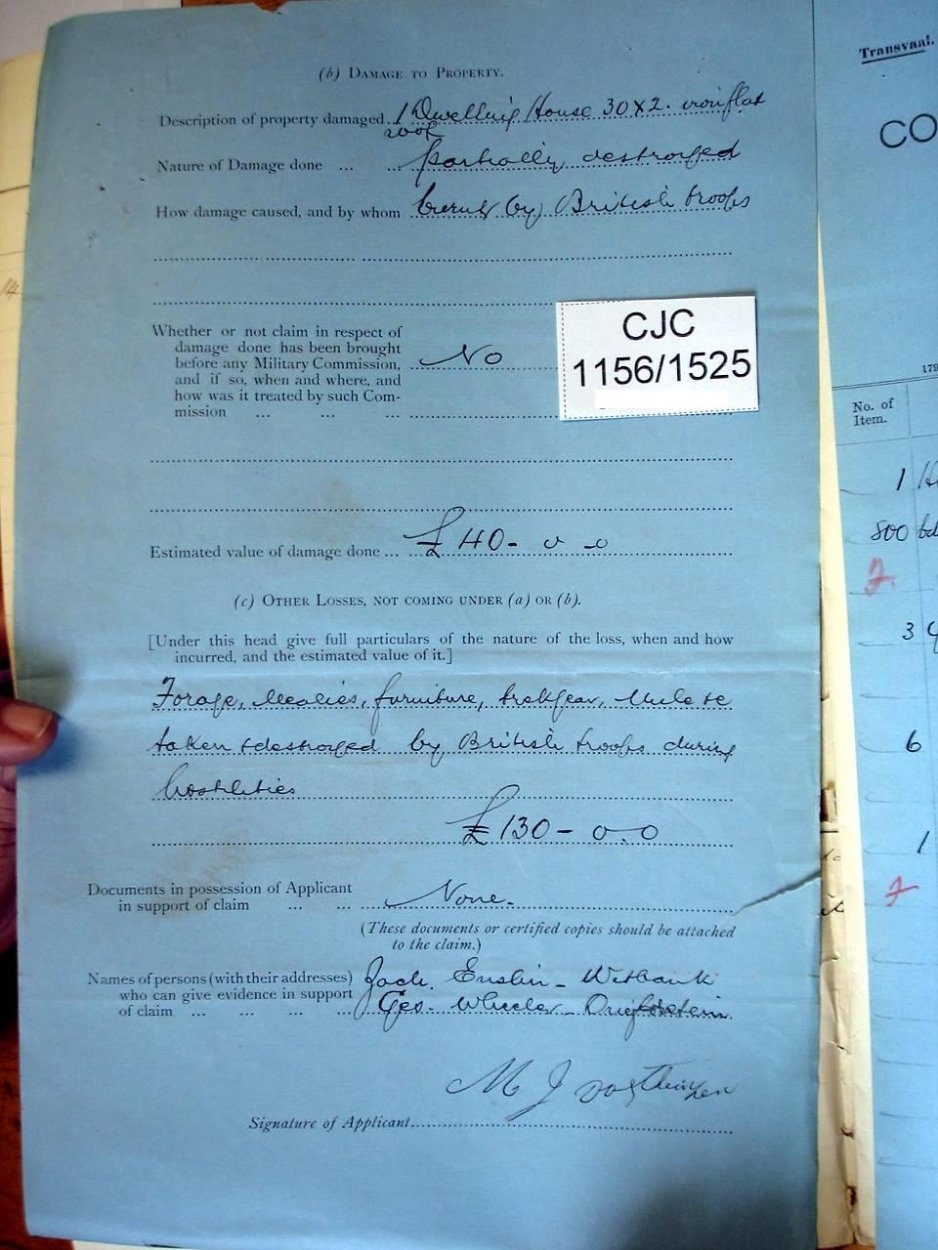 (b) DAMAGE TO PROPERTY.
Description of property damaged 1 Dwelling House 30 x 2. iron flat
roof
Nature of Damage done ... partially destroyed
How damage caused, and by whom burnt by British troops
Whether or not claim in respect of
damage done has been brought
before any Military Commission,
and if so, when and where, and
how was it treated by such Com-
mission ... ... ...
No
CJC
1156/1525
Estimated value of damage done ... £ 40 - 0 - 0
(c) OTHER LOSSES, NOT COMING UNDER (a) OR (b).
[Under this head give full particulars of the nature of the loss, when and how
incurred, and the estimated value of it.]
Forage, Mealies, furniture, trekgear, Mule &c
taken & destroyed by British troops during
hostilities
£ 130 - 0.0
Documents in possession of Applicant
in support of claim ... ... None.
(These documents or certified copies should be attached
to the claim.)
Names of persons (with their addresses)
who can give evidence in support
of claim ... ... ... ...
Jack. Enslin - Witbank
Geo. Wheeler -
M J
Signature of Applicant
Transvaal.
CO
179
No. of
Item.
1
800
3
6
1